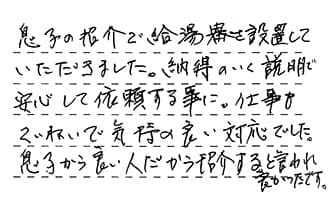 息子の紹介で給湯器を設置して
いただきました。納得のいく説明で
安心して依頼する事に。仕事も
ていねいで気持の良い対応でした。
息子から良い人だから紹介すると言われ
良かったです。